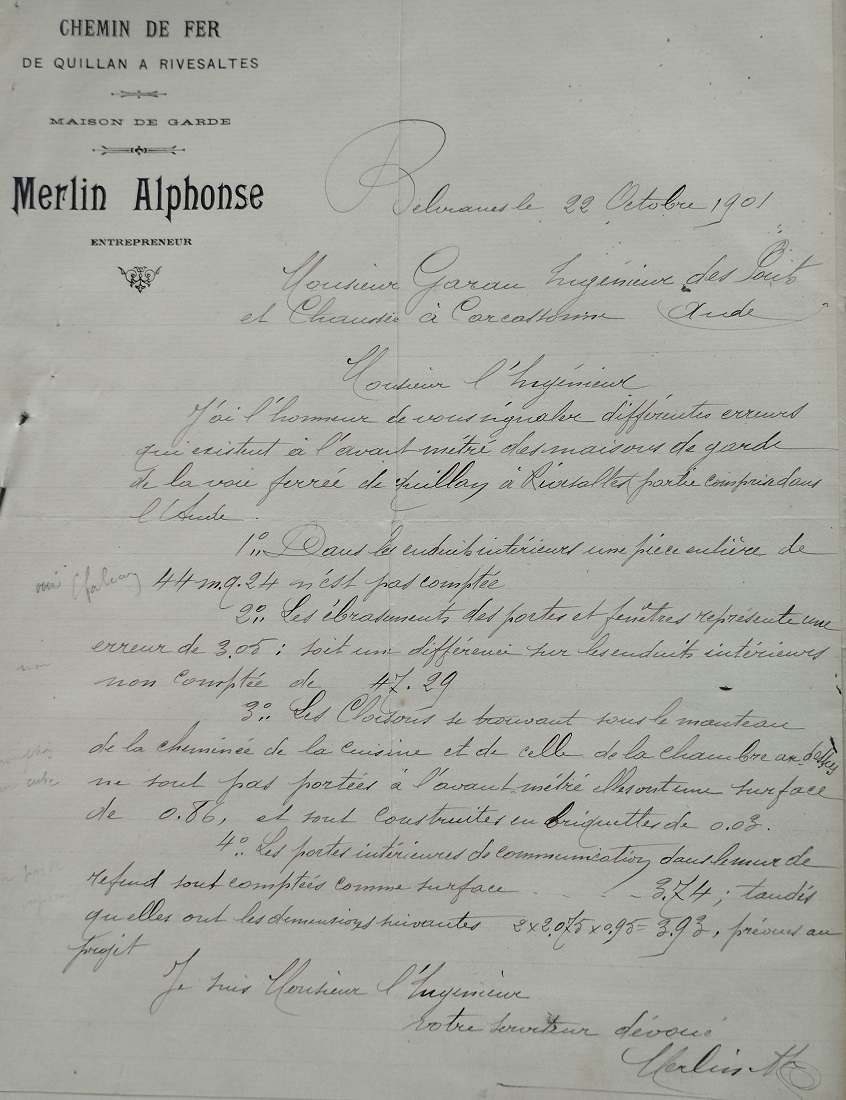 CHEMIN DE FER
DE QUILLAN A RIVESALTES
MAISON DE GARDE
Merlin Alphonse
ENTREPRENEUR
Belvianes le 22 Octobre 1901
Monsieur Garau Ingénieur des Ponts
et Chaussée à Carcassonne (Aude
Monsieur l'Ingénieur
J'ai l'honneur de vous signaler différentes erreurs
qui existent à l'avant métré des maisons de garde
de la voie ferrée de Quillan à Rivesaltes partie comprise dans
l'Aude.
1º" Dans les enduits intérieurs une pièce entière de
44 m.q. 24 n'est pas comptée
2º" Les ébrasements des portes et fenêtres représente une
erreur de 3.05 : soit un différence sur les enduits intérieurs
non
non comptée de 47.29
3º" Les Cloisons se trouvant sous le manteau
de la cheminée de la cuisine et de celle de la chambre au-dessus
ne sont pas portées à l'avant-métré elles ont une surface
de 0.86, et sont construites en briquettes de 0.03.
4º" Les portes intérieures de communication dans le mur de
refend sont comptées comme surface - - - 3.74 ; tandis
qu'elles ont les dimensions suivantes 2x2.075x0.95=3.93, prévues au
projet
Je suis Monsieur l'Ingénieur
votre serviteur dévoué
Merlin A